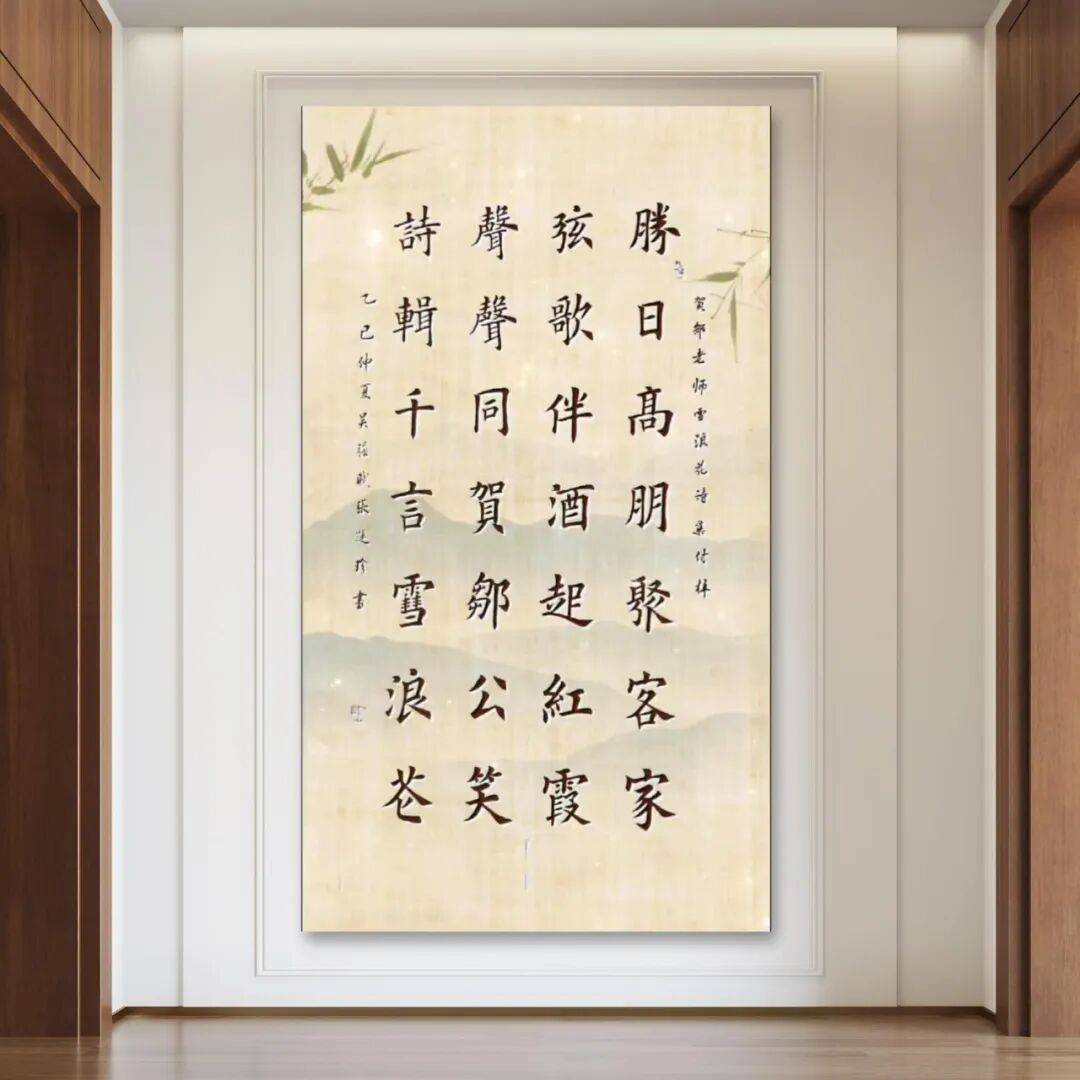 贺邹老师雪浪花诗集付梓
勝日髙朋聚客家
弦歌伴酒起紅霞
聲聲同賀鄒公笑
詩輯千言雪浪芲
乙巳仲夏吴强赋张莲珍書